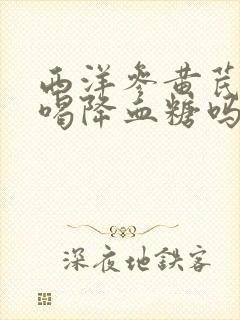 西洋参黄芪
喝降血糖吗
深夜地鉄客